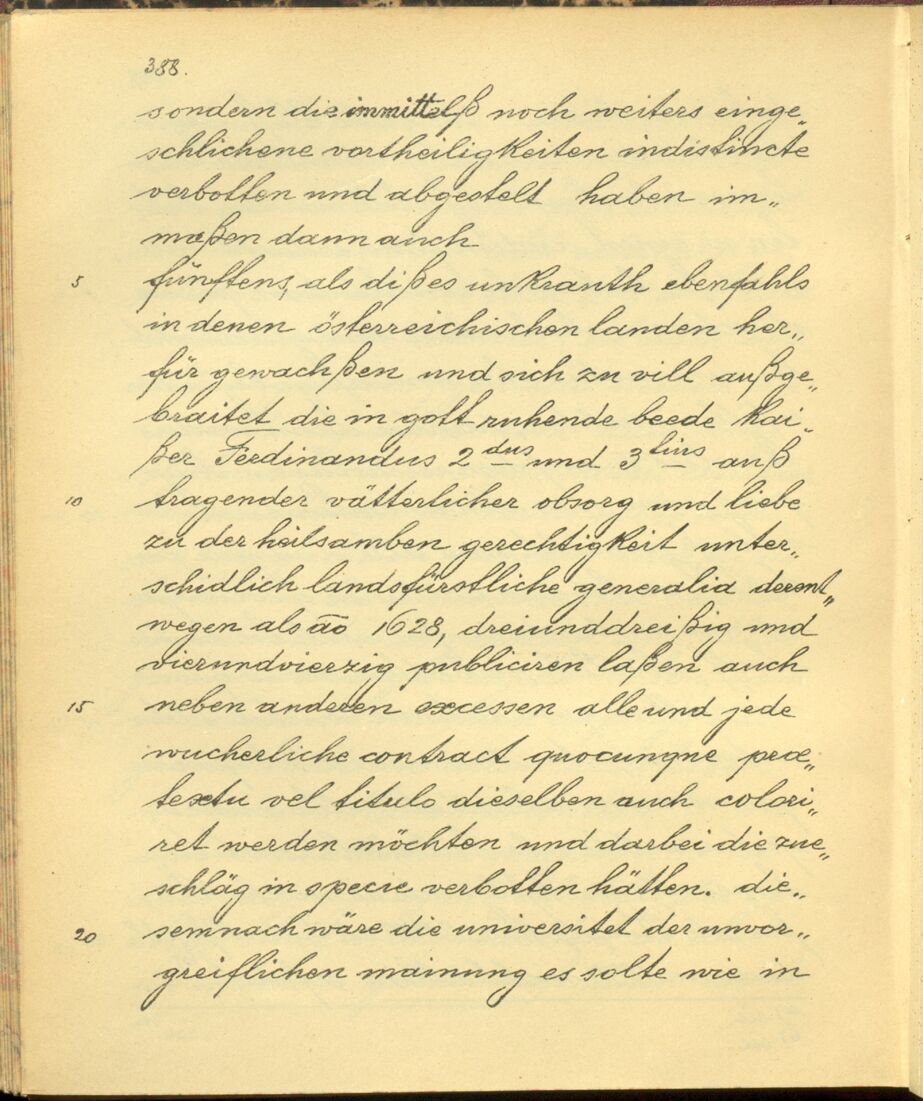 388.
sondern die immittelß noch weiters einge„
schlichene vortheiligkeiten indistincte
verbotten und abgestelt haben im„
maßen dann auch
5 fünftens, als dißes unkrauth ebenfahls
in denen österreichischen landen her„
für gewachßen und sich zu vill außge„
braitet die in gott ruhende beede Kai„
ßer Ferdinandus 2dus und 3tius auß
10 tragender vätterlicher obsorg und liebe
zu der heilsamben gerechtigkeit unter„
schidlich landsfürstliche generalia derent„
wegen als āo 1628, dreiunddreißig und
vierundvierzig publiciren laßen auch
15 neben anderen excessen alle und jede
wucherliche contract quocunque præ„
textu vel titulo dieselben auch colori„
ret werden möchten und darbei die zue„
schläg in specie verbotten hätten. die„
20 semnach wäre die universitet der unvor„
greiflichen mainung es solte wie in